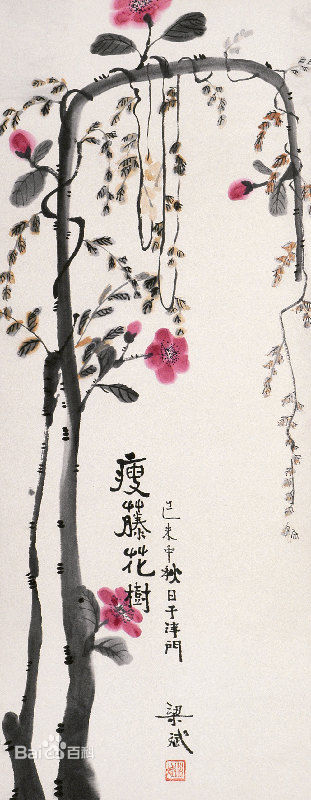 瘦藤花樹
己未中秋日于津門
梁斌
Bai百科